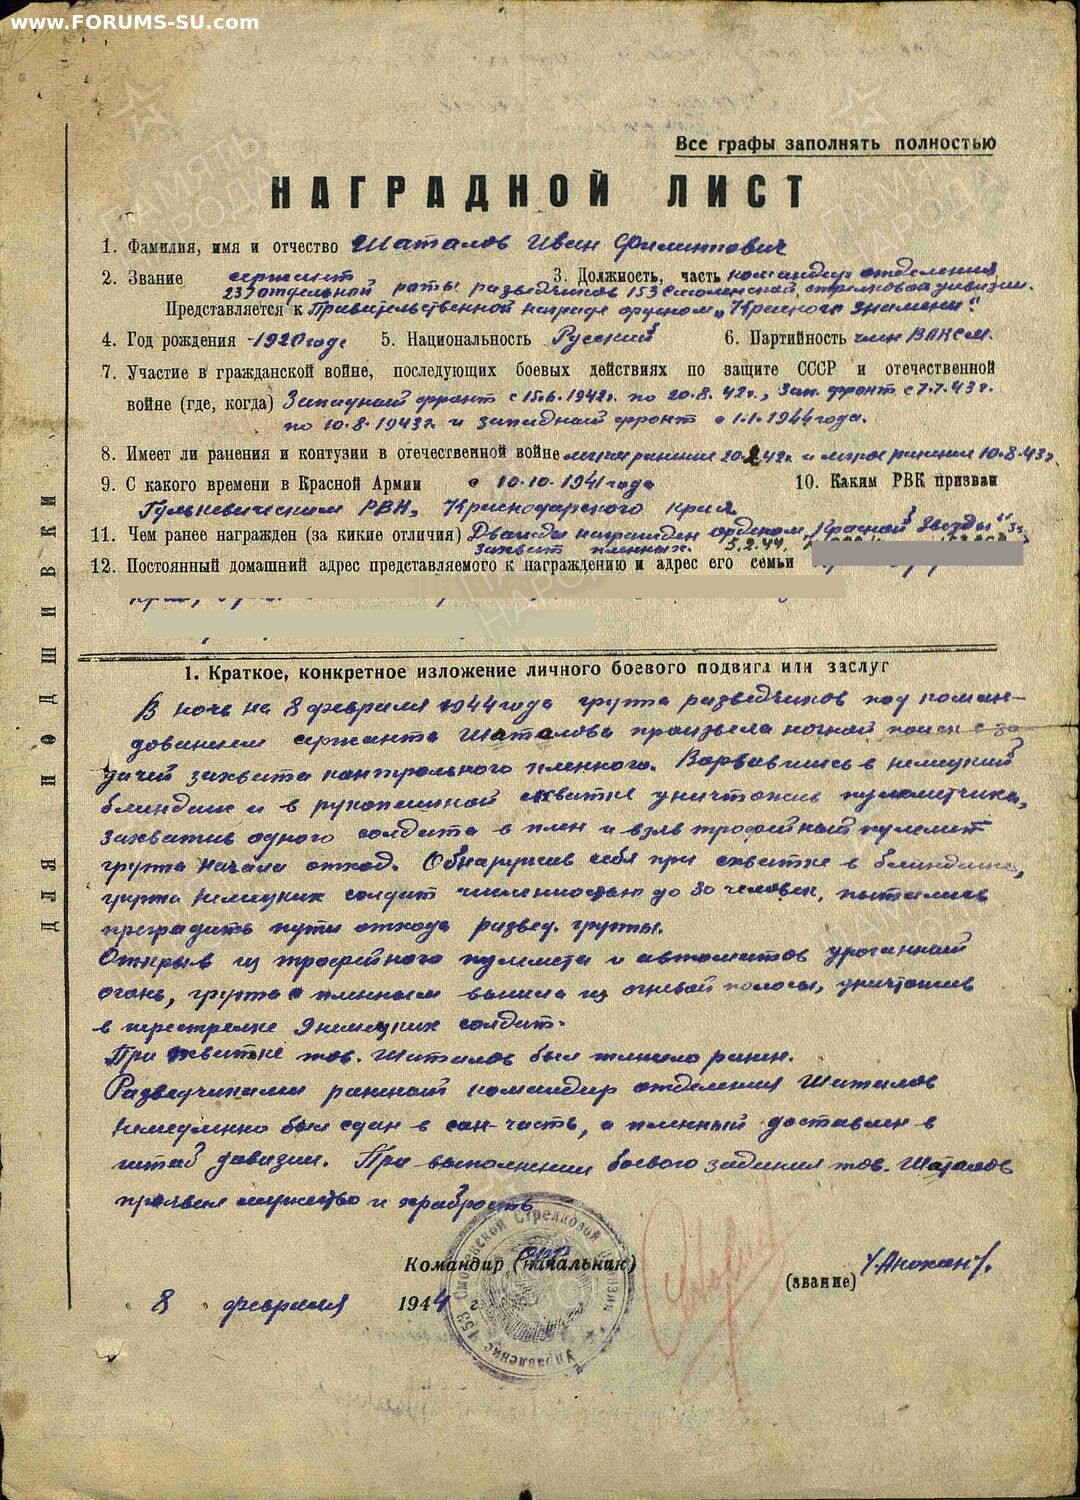 www.FORUMS-SU.com
Все графы заполнять полностью
НАГРАДНОЙ ЛИСТ
1. Фамилия, имя и отчество Шаталов Иван Филиппович
2. Звание сержант 3. Должность, часть командир отделения
237 отдельной роты разведчиков 153 Смоленской стрелковой дивизии.
Представляется к Правительственной награде орденом „Красного знамени“.
4. Год рождения 1920 годе 5. Национальность Русский 6. Партийность член ВЛКСМ.
7. Участие в гражданской войне, последующих боевых действиях по защите СССР и отечественной
войне (где, когда) Западный фронт с 15.6.1942г. по 20.8.42г., Зап. фронт с 7.7.43г.
по 10.8.1943г. и западный фронт с 1.1.1944 года.
8. Имеет ли ранения и контузии в отечественной войне легкое ранение 20.8.42г. и легкое ранение 10.8.43г.
9. С какого времени в Красной Армии с 10.10.1941 года 10. Каким РВК призван
Гулькевическим РВК, Краснодарского края
11. Чем ранее награжден (за кикие отличия) Дважды награжден орденом „Красной Звезды“ за
захват пленных. 5.2.44.
12. Постоянный домашний адрес представляемого к награждению и адрес его семьи
ДЛЯ ПОДШИВКИ
1. Краткое, конкретное изложение личного боевого подвига или заслуг
В ночь на 8 февраля 1944 года группа разведчиков под коман-
дованием сержанта Шаталова произвела ночной поиск с за-
дачей захвата контрольного пленного. Ворвавшись в немецкий
блиндаж и в рукопашной схватке уничтожив пулеметчика,
захватив одного солдата в плен и взяв трофейный пулемет
группа начала отход. Обнаружив себя при схватке в блиндаже,
группа немецких солдат численностью до 30 человек, пыталась
преградить пути отхода развед. группы.
Открыв из трофейного пулемета и автоматов ураганный
огонь, группа с пленным вышла из огневой полосы, уничтожив
в перестрелке 9 немецких солдат.
При схватке тов. Шаталов был тяжело ранен.
Разведчиками раненый командир отделения Шаталов
немедленно был сдан в сан-часть, а пленный доставлен в
штаб дивизии. При выполнении боевого задания тов. Шаталов
проявил мужество и храбрость
Командир (начальник)
(звание)
8 февраля 1944 г.
Управление 153 Смоленской Стрелковой Дивизии
ПАМЯТЬ НАРОДА